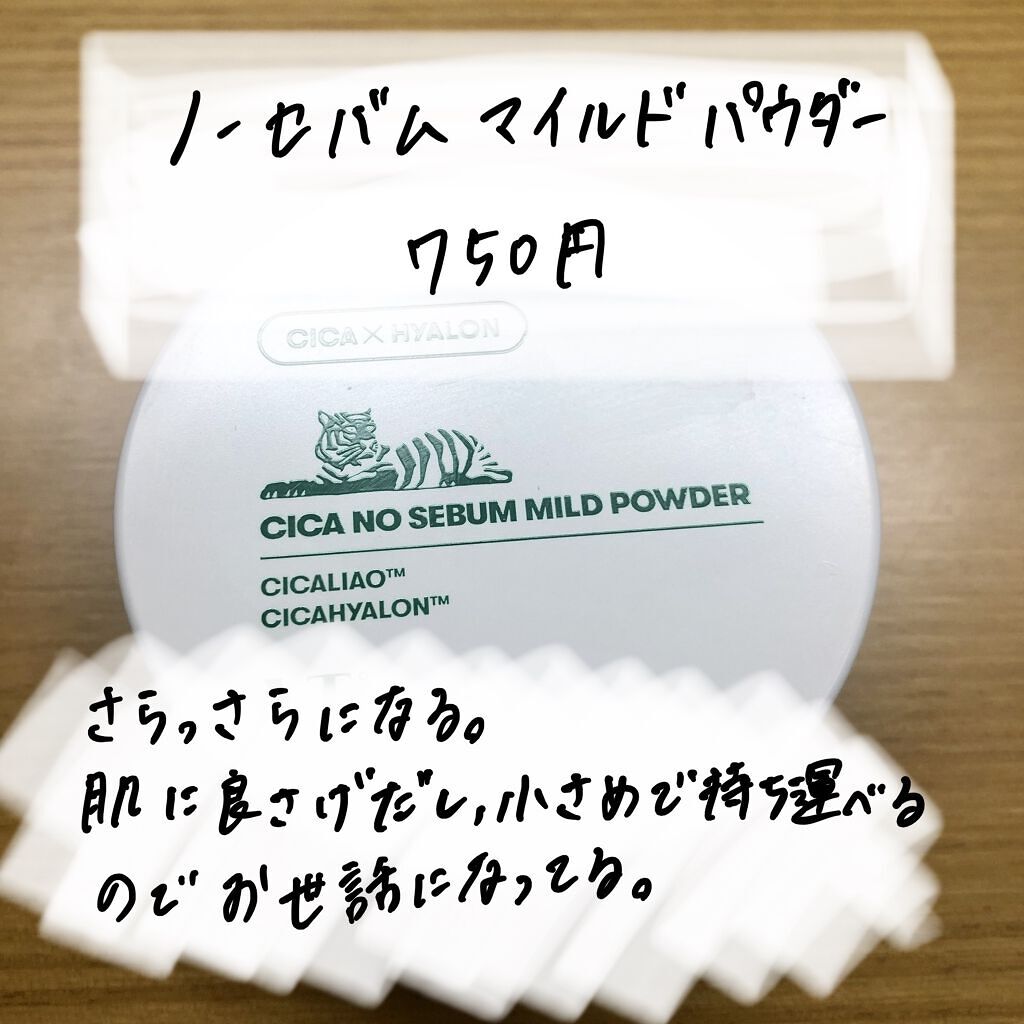 ノーセバム マイルドパウダー
750円
CICA×HYALON
CICA NO SEBUM MILD POWDER
CICALIAO™
CICAHYALON™
さらっさらになる。
肌に良さげだし,小さめで持ち運べる
のでお世話になってる。